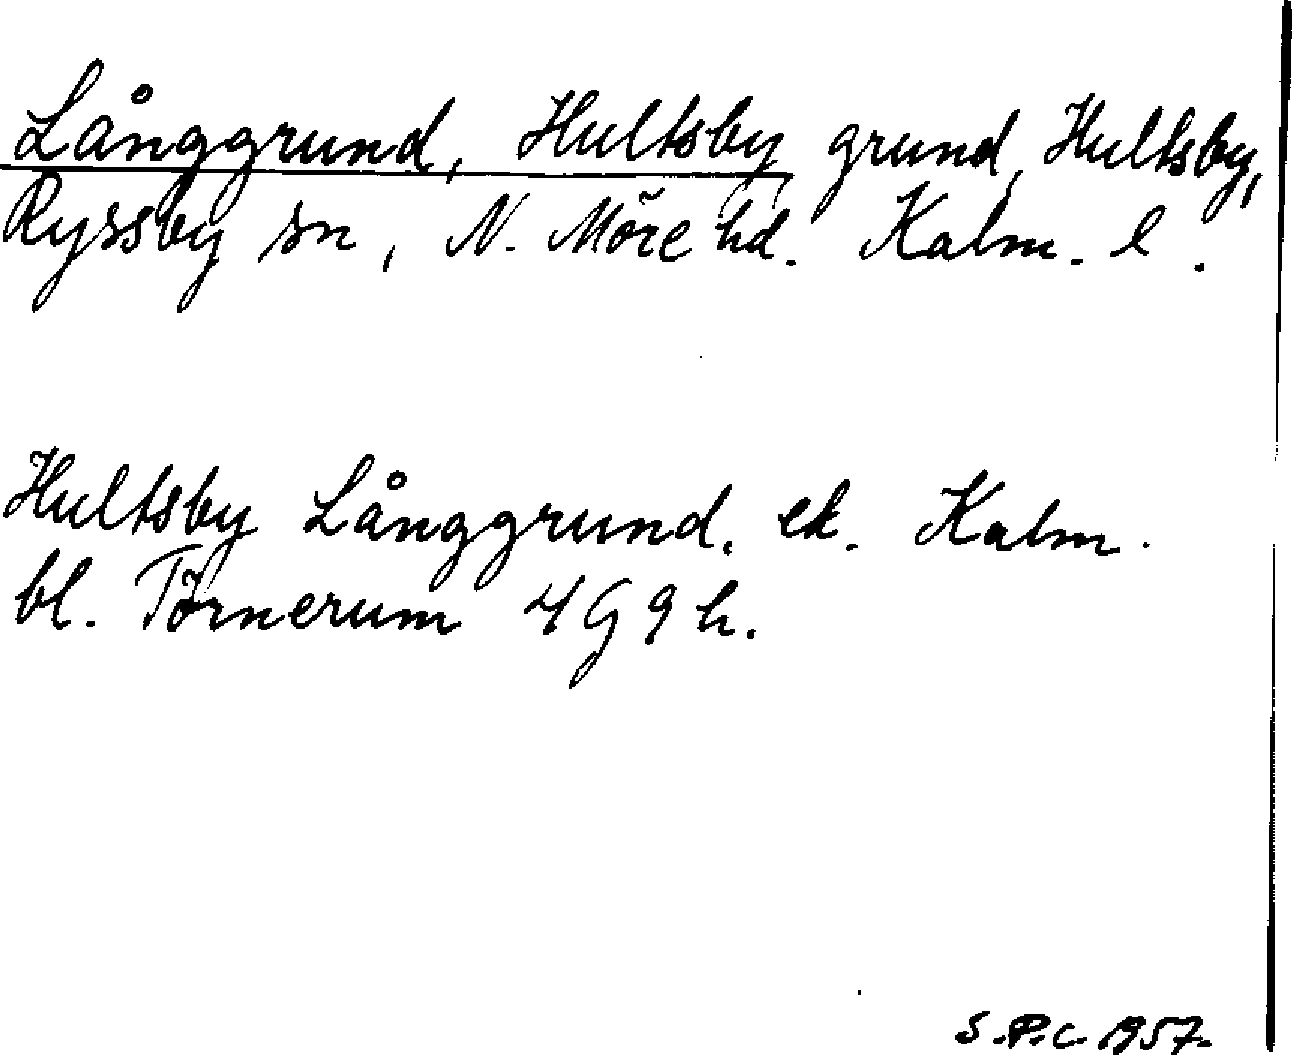 Långgrund, Hultsby grund, Hultsby,
Ryssby sn, N. Möre hd. Kalm. l.
Hultsby Långgrund. ek. Kalm.
bl. Törnerum 4G9h.
S.P.C. 1957.